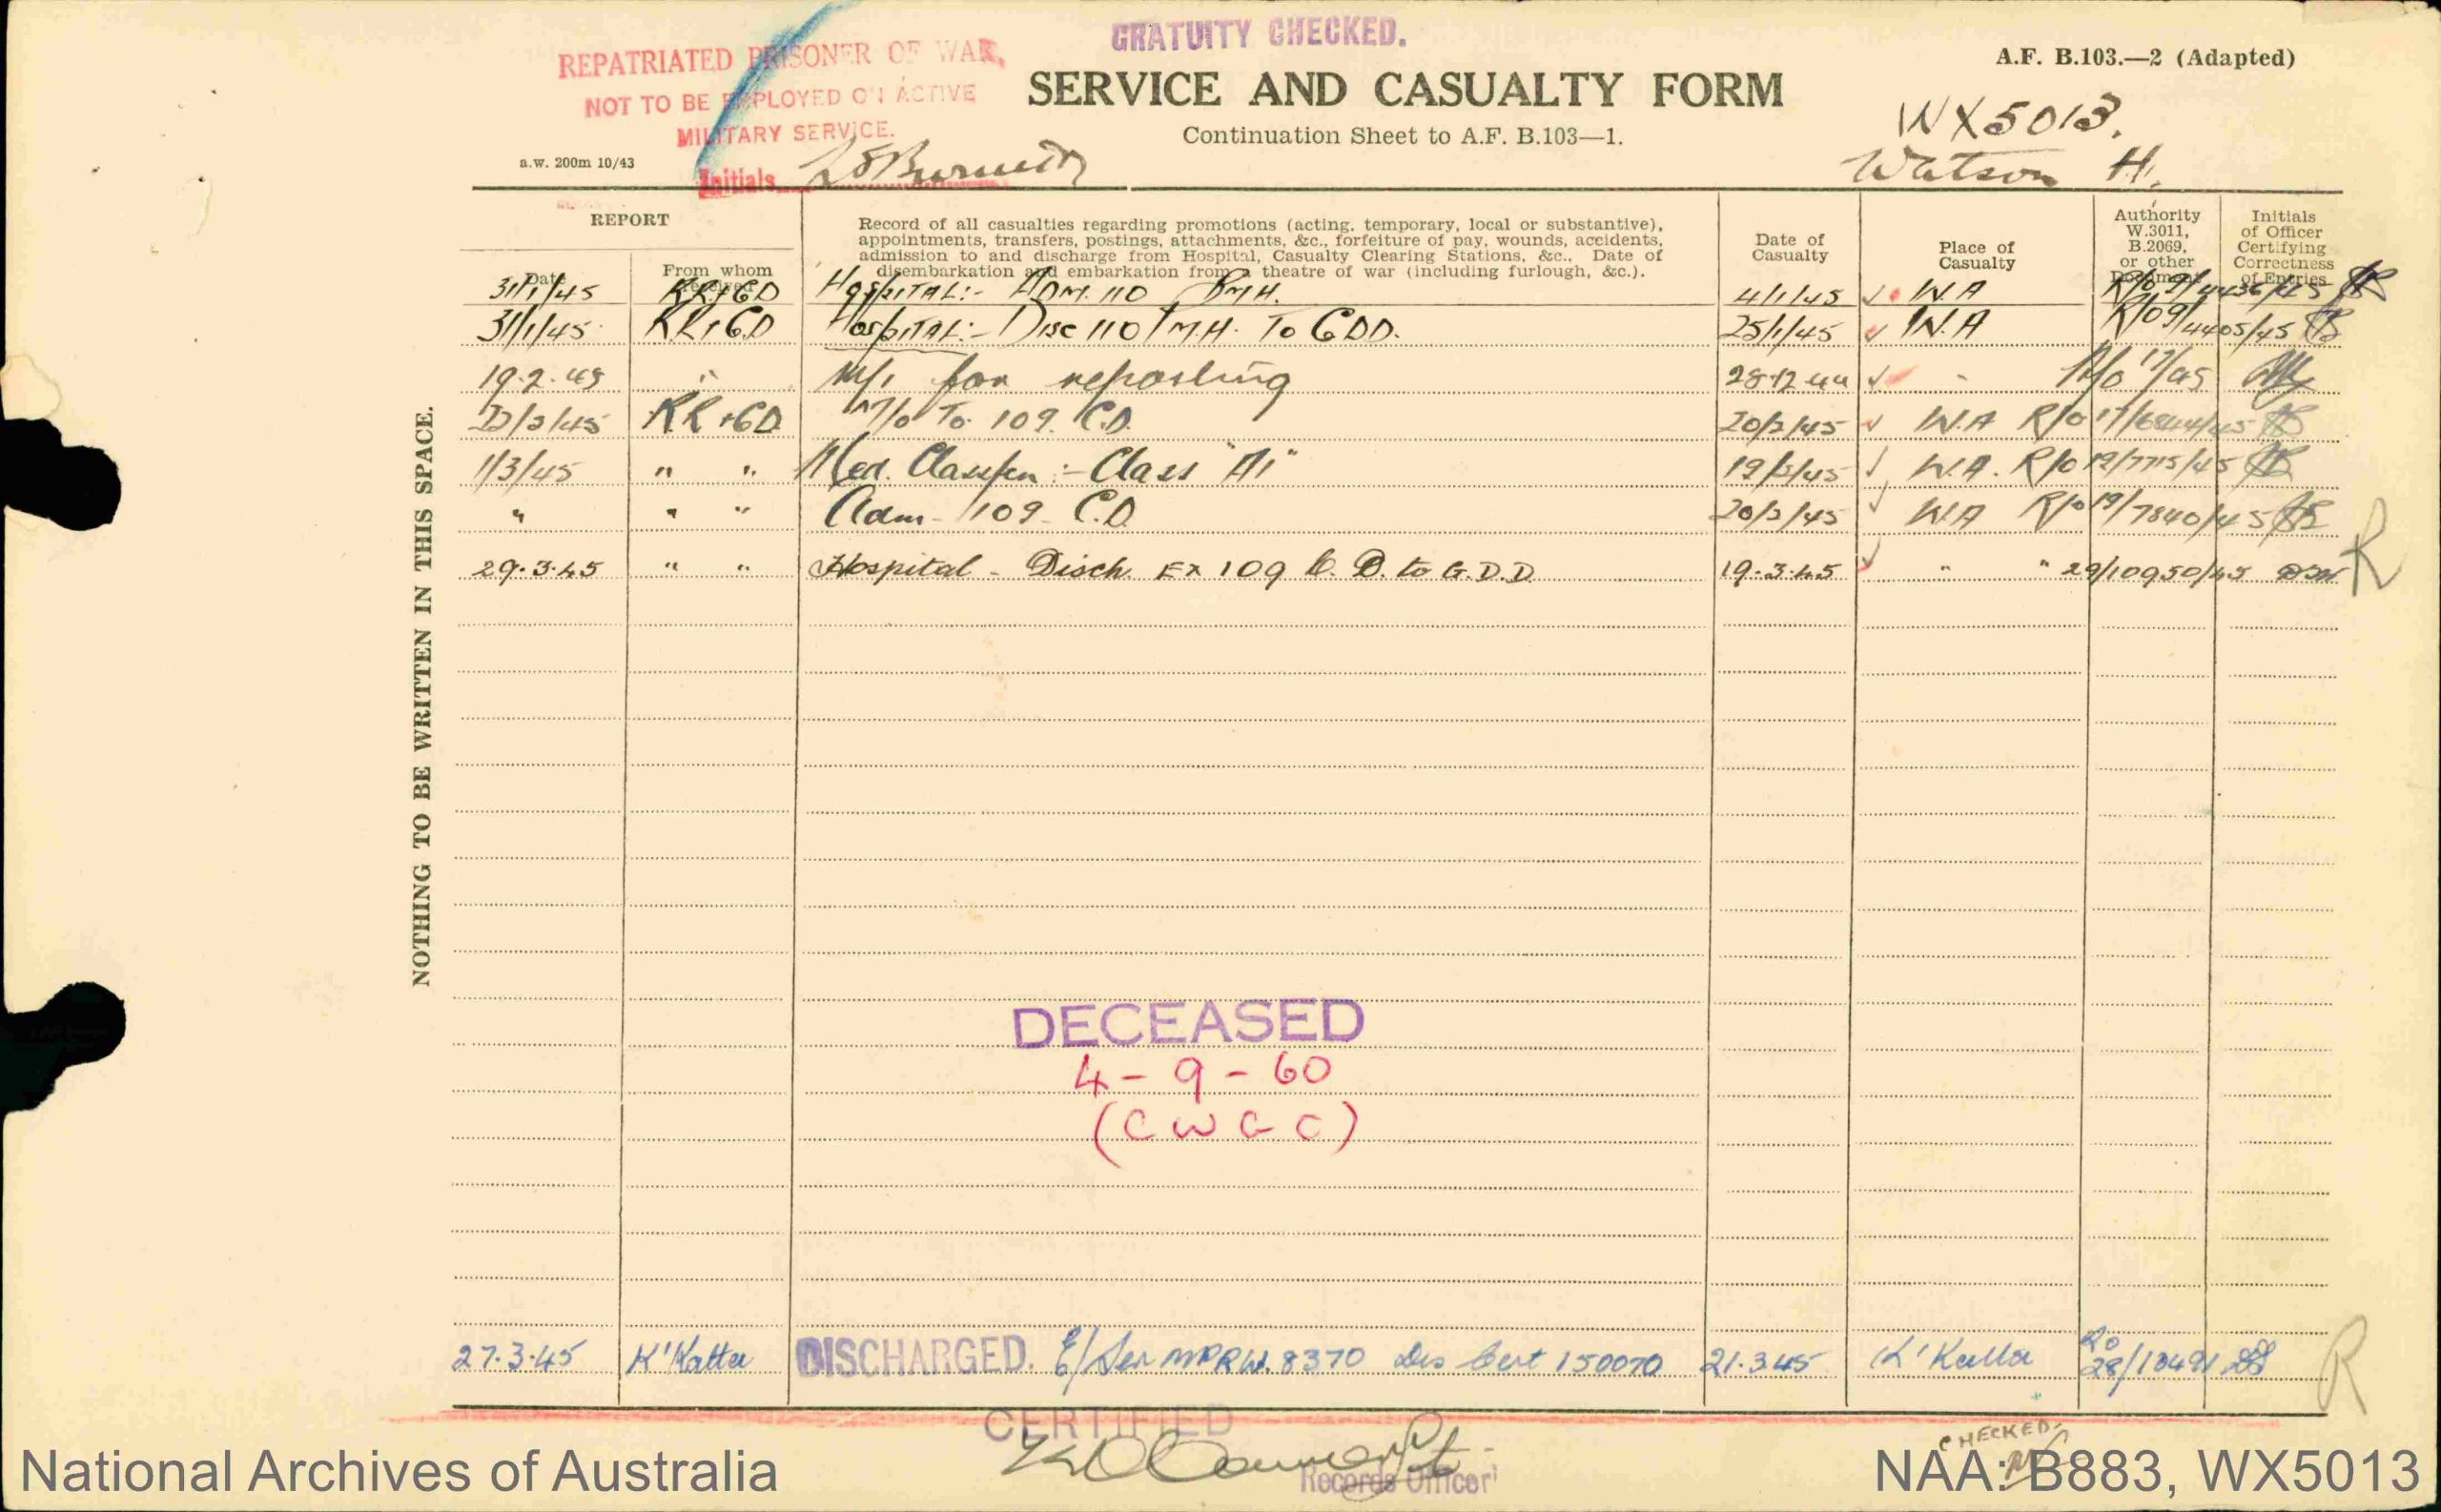 GRATUITY CHECKED.
REPATRIATED PRISONER OF WAR,
NOT TO BE EMPLOYED ON ACTIVE
MILITARY SERVICE.
Initials
A.F. B.103.—2 (Adapted)
SERVICE AND CASUALTY FORM
Continuation Sheet to A.F. B.103—1.
a.w. 200m 10/43
WX5013.
Watson H.
NOTHING TO BE WRITTEN IN THIS SPACE.
REPORT
Date
From whom received
Record of all casualties regarding promotions (acting, temporary, local or substantive),
appointments, transfers, postings, attachments, &c., forfeiture of pay, wounds, accidents,
admission to and discharge from Hospital, Casualty Clearing Stations, &c., Date of
disembarkation and embarkation from a theatre of war (including furlough, &c.).
Date of
Casualty
Place of
Casualty
Authority
W.3011,
B.2069,
or other
Document
Initials
of Officer
Certifying
Correctness
of Entries
31/1/45 RR+GD Hospital:- Adm. 110 P.M.H. 4/1/45 W.A
31/1/45 RR+GD Hospital:- Disc 110 P.M.H. To GDD. 25/1/45 W.A R/O 9/4405/45
19.2.45 " M/i for reposting 28.12.44 " R/O 17/45
RR+GD M/o To 109. C.D. 20/2/45 W.A R/O 17/6844/45
1/3/45 " " Med. Classfn :- Class "A1" 19/2/45 W.A. R/O 19/7715/45
" " " Adm - 109 - C.D. 20/2/45 W.A R/O 19/7840/45
29.3.45 " " Hospital - Disch. Ex 109 C.D. to G.D.D. 19.3.45 " " 29/10950/45
R
DECEASED
4-9-60
(CWGC)
27.3.45 K'Katta DISCHARGED. E/Ser MPRW.8370 Dis Cert 150070 21.3.45 K'Katta RO 28/10491
R
CERTIFIED
Records Officer
CHECKED
National Archives of Australia
NAA: B883, WX5013